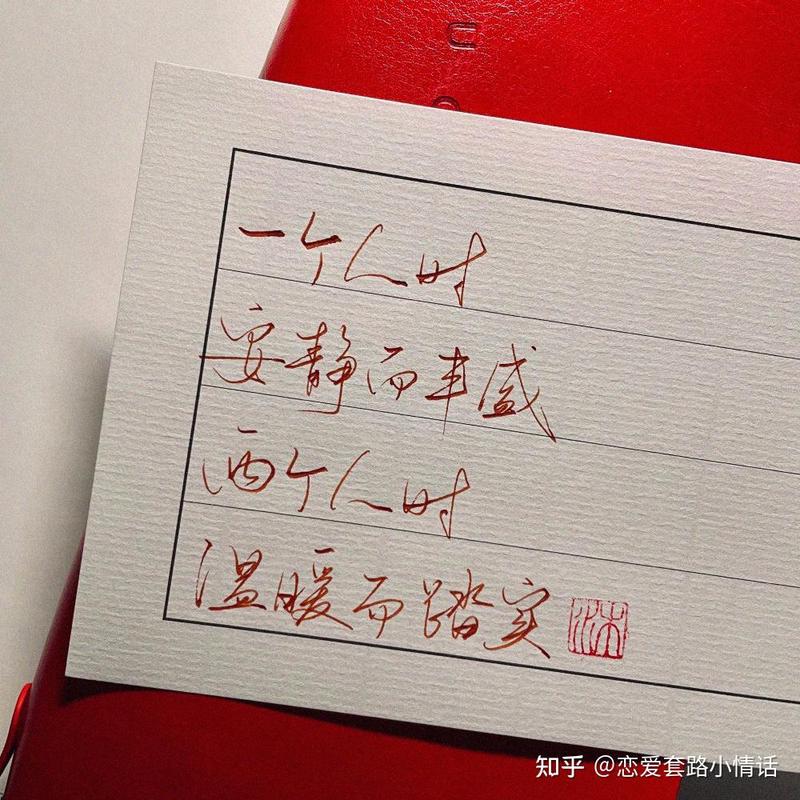 一个人时
安静而丰盛
两个人时
温暖而踏实
沐
知乎 @恋爱套路小情话